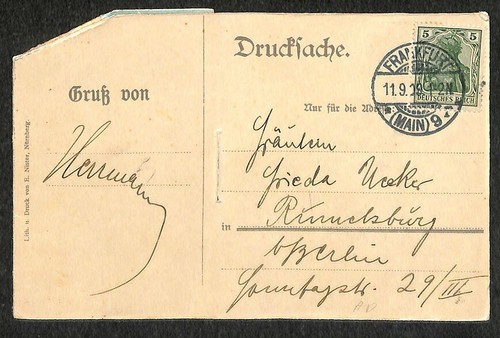 Drucksache.
5 5
DEUTSCHES REICH
FRANKFURT
11.9.09. 1-2N
* (MAIN) 9 *
Gruß von
Nur für die Adresse
Herrmann
Fräulein
Frieda Uecker
in Rummelsburg
b/Berlin
Sonntagstr. 29/III
Lith. u Druck von E. Nister, Nürnberg.